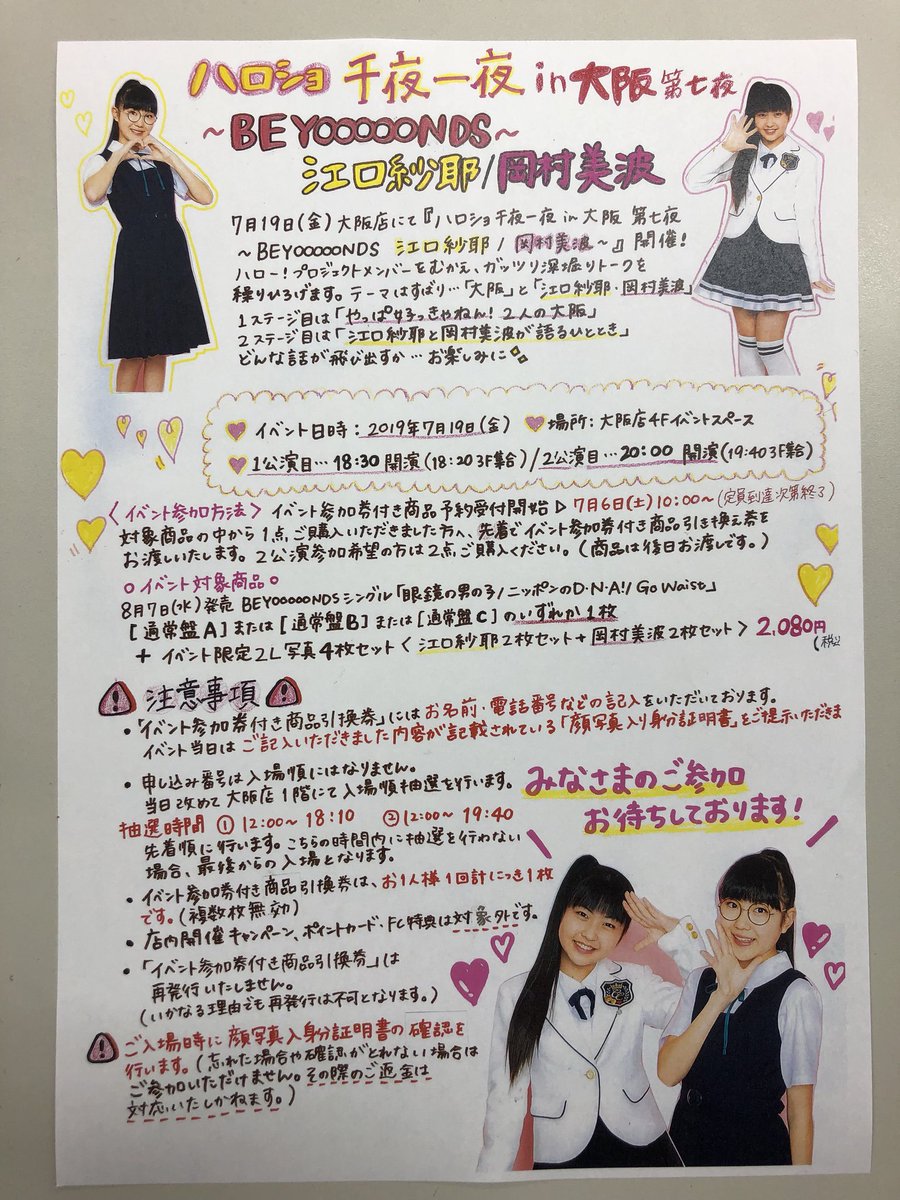 ハロショ 千夜一夜 in 大阪 第七夜
～BEYOOOOONDS～
江口紗耶/岡村美波
7月19日(金)大阪店にて『ハロショ千夜一夜 in 大阪 第七夜
～BEYOOOOONDS 江口紗耶/岡村美波～』開催!
ハロー!プロジェクトメンバーをむかえ、ガッツリ深堀りトークを
繰りひろげます。テーマはずばり…「大阪」と「江口紗耶・岡村美波」
1ステージ目は「やっぱ好っきゃねん!2人の大阪」
2ステージ目は「江口紗耶と岡村美波が語るひととき」
どんな話が飛び出すか…お楽しみに
イベント日時:2019年7月19日(金) 場所:大阪店4Fイベントスペース
1公演目…18:30 開演(18:20 3F集合)/2公演目…20:00 開演(19:40 3F集合)
〈イベント参加方法〉イベント参加券付き商品予約受付開始▷7月6日(土)10:00～(定員到達次第終了)
対象商品の中から1点、ご購入いただきました方へ、先着でイベント参加券付き商品引き換え券を
お渡しいたします。2公演参加希望の方は2点、ご購入ください。(商品は後日お渡しです。)
○イベント対象商品○
8月7日(水)発売 BEYOOOOONDSシングル「眼鏡の男の子/ニッポンのD・N・A!/Go Waist」
[通常盤A]または[通常盤B]または[通常盤C]のいずれか1枚
+ イベント限定2L写真4枚セット〈江口紗耶2枚セット+岡村美波2枚セット〉2,080円
(税込
注意事項
・「イベント参加券付き商品引換券」にはお名前・電話番号などの記入をいただいております。
イベント当日はご記入いただきました内容が記載されている「顔写真入り身分証明書」をご提示いただきま
・申し込み番号は入場順にはなりません。
当日改めて大阪店1階にて入場順抽選を行います。
抽選時間 ①12:00～18:10 ②12:00～19:40
先着順に行います。こちらの時間内に抽選を行わない
場合、最後からの入場となります。
・イベント参加券付き商品引換券は、お1人様1回計につき1枚
です。(複数枚無効)
・店内開催キャンペーン、ポイントカード、FC特典は対象外です。
・「イベント参加券付き商品引換券」は
再発行いたしません。
(いかなる理由でも再発行は不可となります。)
ご入場時に顔写真入身分証明書の確認を
行います。(忘れた場合や確認がとれない場合は
ご参加いただけません。その際のご返金は
対応いたしかねます。)
みなさまのご参加
お待ちしております!